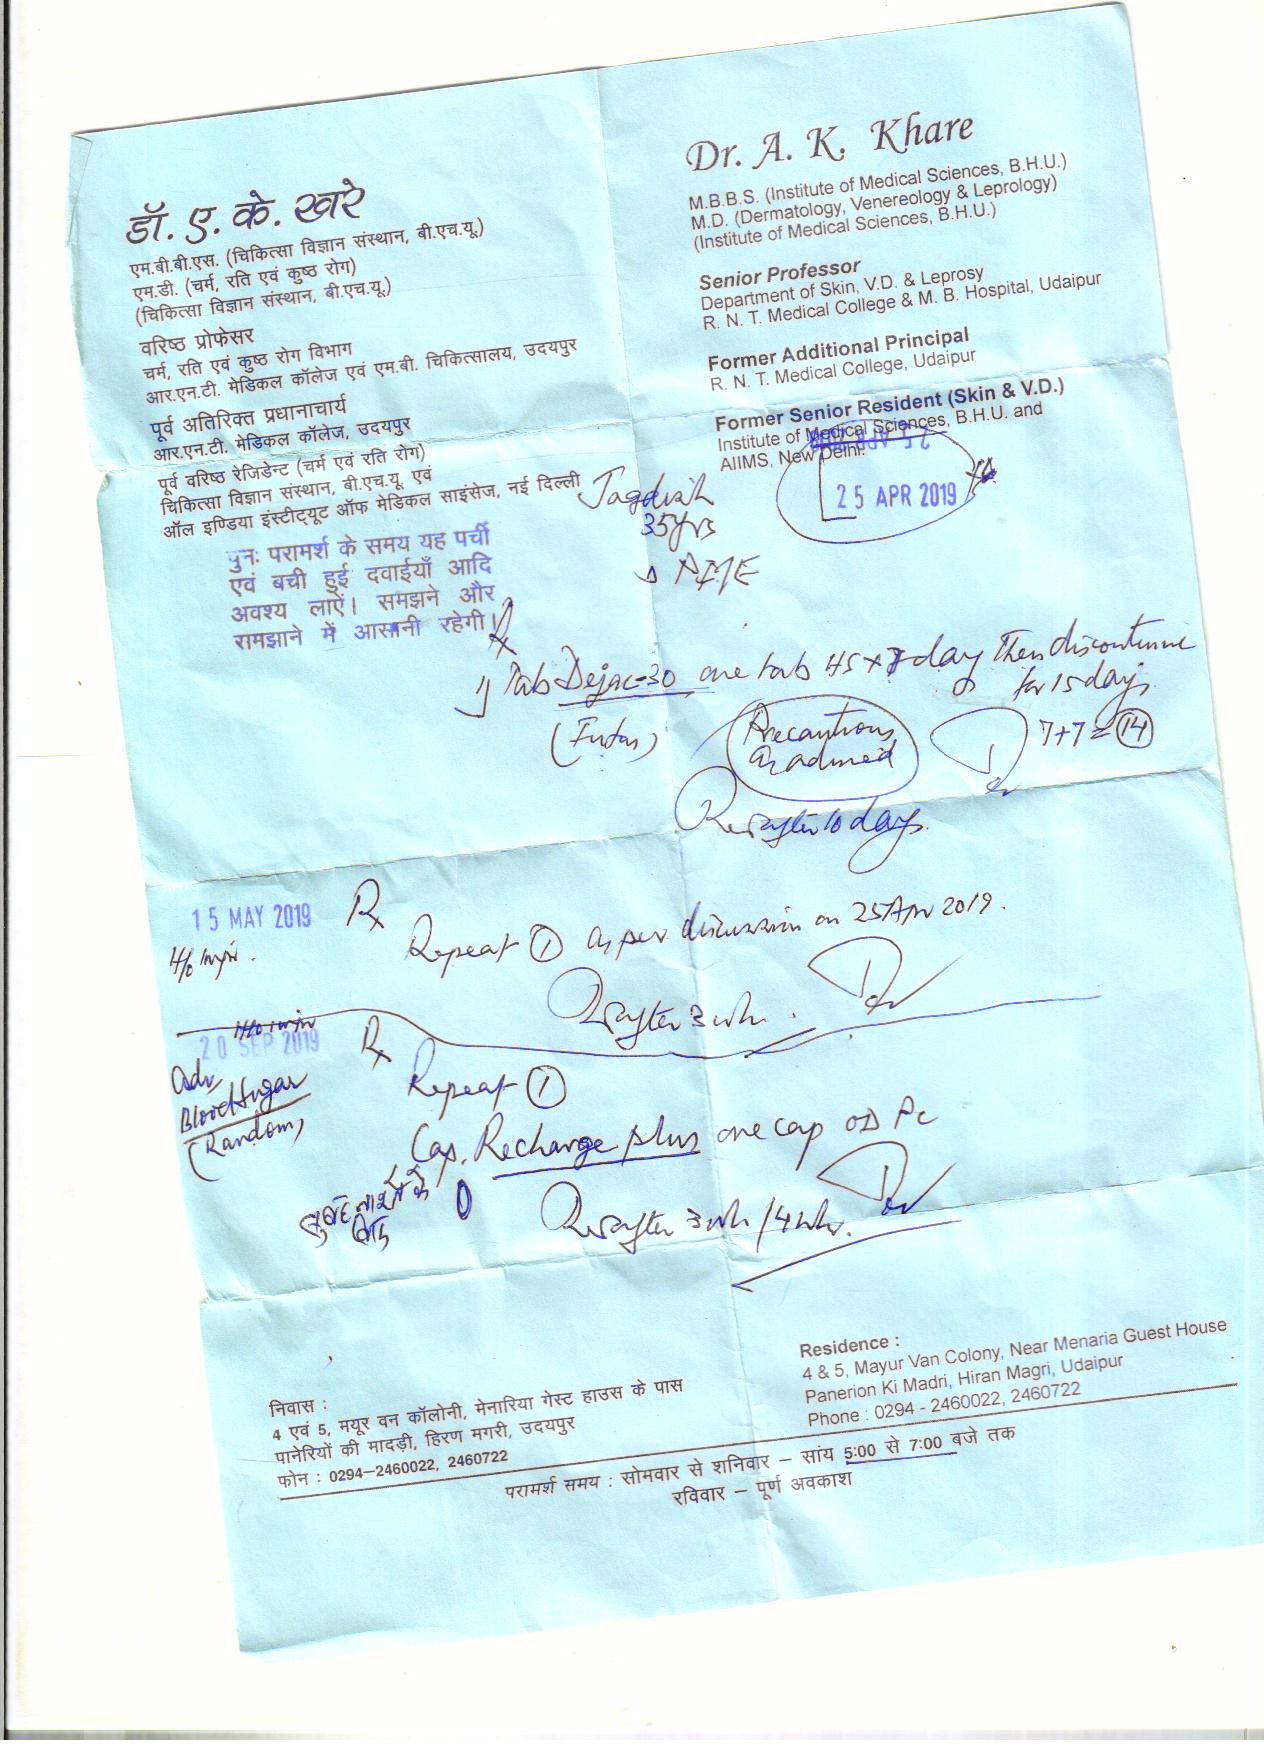 डॉ. ए. के. खरे
एम.बी.बी.एस. (चिकित्सा विज्ञान संस्थान, बी.एच.यू.)
एम.डी. (चर्म, रति एवं कुष्ठ रोग)
(चिकित्सा विज्ञान संस्थान, बी.एच.यू.)
वरिष्ठ प्रोफेसर
चर्म, रति एवं कुष्ठ रोग विभाग
आर.एन.टी. मेडिकल कॉलेज एवं एम.बी. चिकित्सालय, उदयपुर
पूर्व अतिरिक्त प्रधानाचार्य
आर.एन.टी. मेडिकल कॉलेज, उदयपुर
पूर्व वरिष्ठ रेजिडेन्ट (चर्म एवं रति रोग)
चिकित्सा विज्ञान संस्थान, बी.एच.यू. एवं
ऑल इण्डिया इंस्टीट्यूट ऑफ मेडिकल साइंसेज, नई दिल्ली
पुनः परामर्श के समय यह पर्ची
एवं बची हुई दवाईयाँ आदि
अवश्य लाऐं। समझने और
समझाने में आसानी रहेगी।
Dr. A. K. Khare
M.B.B.S. (Institute of Medical Sciences, B.H.U.)
M.D. (Dermatology, Venereology & Leprology)
(Institute of Medical Sciences, B.H.U.)
Senior Professor
Department of Skin, V.D. & Leprosy
R. N. T. Medical College & M. B. Hospital, Udaipur
Former Additional Principal
R. N. T. Medical College, Udaipur
Former Senior Resident (Skin & V.D.)
Institute of Medical Sciences, B.H.U. and
AIIMS, New Delhi.
25 APR 2019
Jagdish
35yrs
Rx
1) Tab Dejac-30 one tab HS x 7 day Then discontinue
for 15 days
Precautions
as advised
7+7=14
after 10 days
15 MAY 2019
Rx
Repeat 1 as per discussion on 25 Apr 2019.
after 3 wk.
20 SEP 2019
Rx
Adv
Blood Sugar
(Random)
Repeat 1
Cap. Recharge plus one cap OD Pc
सुबह नाश्ते के
after 3 wk / 4 wk.
Residence :
4 & 5, Mayur Van Colony, Near Menaria Guest House
Panerion Ki Madri, Hiran Magri, Udaipur
Phone : 0294 - 2460022, 2460722
निवास :
4 एवं 5, मयूर वन कॉलोनी, मेनारिया गेस्ट हाउस के पास
पानेरियों की मादड़ी, हिरण मगरी, उदयपुर
फोन : 0294–2460022, 2460722
परामर्श समय : सोमवार से शनिवार – सांय 5:00 से 7:00 बजे तक
रविवार – पूर्ण अवकाश